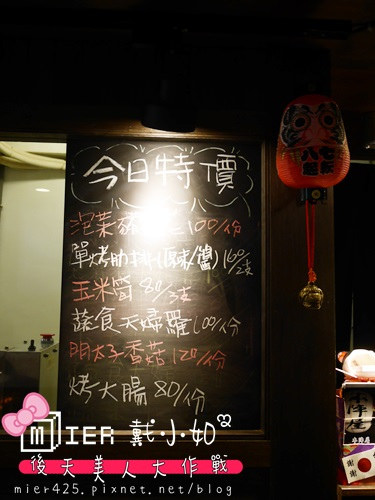 今日特價
泡菜豬 100/份
單烤肋排(原味/醬)160/2支
玉米筍 80/3支
蔬食天婦羅 100/份
明太子香菇 120/份
烤大腸 80/份
MIER 戴小如
後天美人大作戰
mier425.pixnet.net/blog